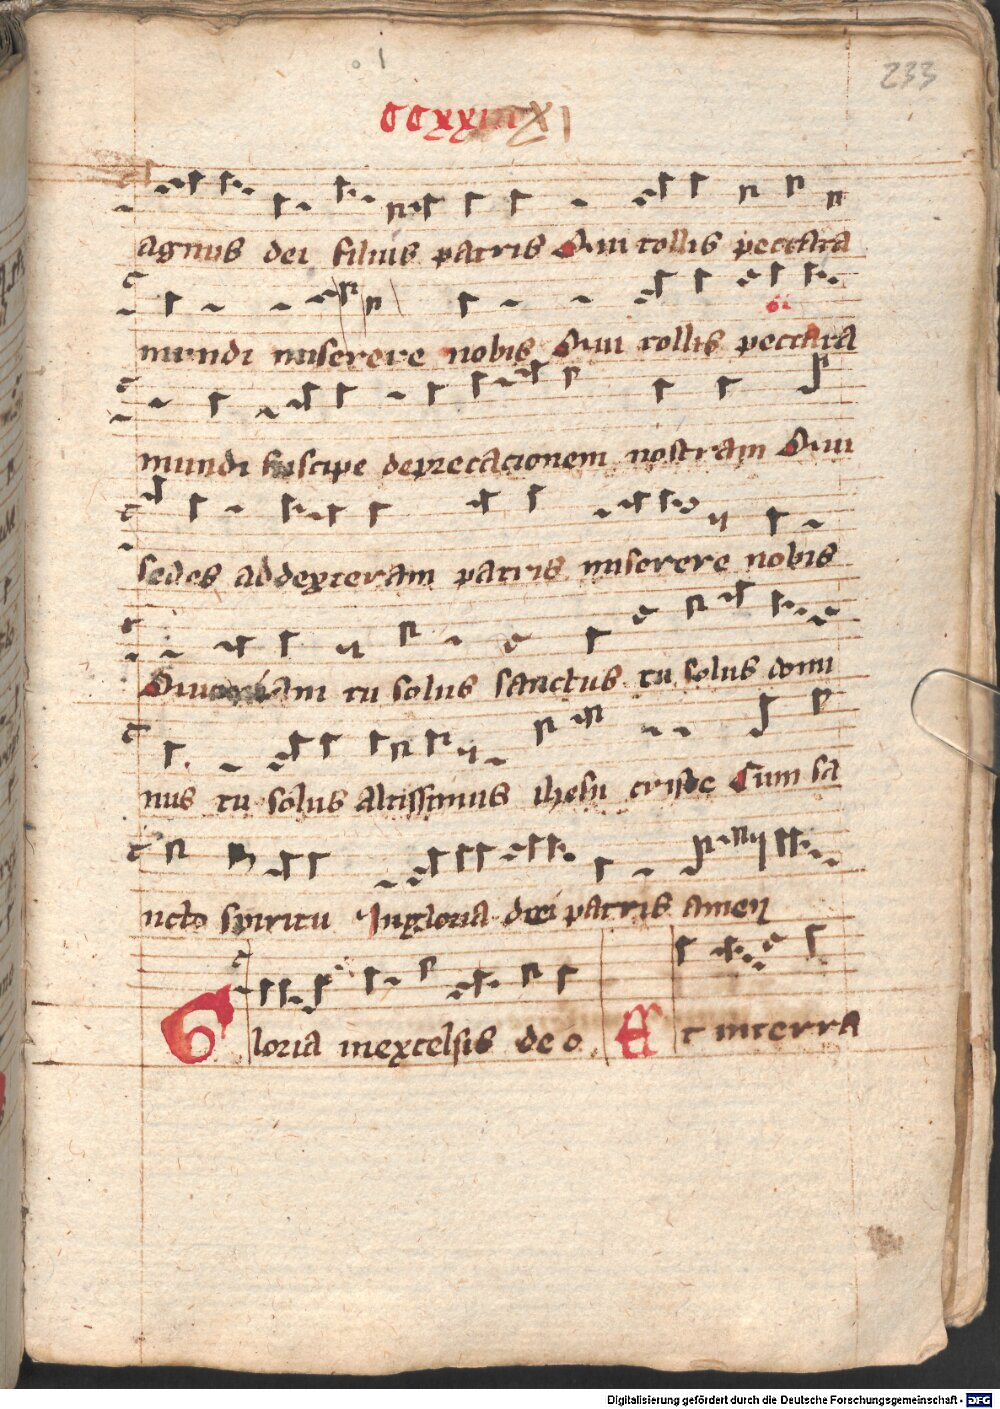 233
agnus dei filius patris Qui tollis peccata
mundi miserere nobis Qui tollis peccata
mundi suscipe deprecacionem nostram Qui
sedes ad dexteram patris miserere nobis
tu solus sanctus tu solus domi
nus tu solus altissimus ihesu criste Cum sa
ncto spiritu In gloria dei patris amen
Gloria in excelsis deo Et in terra
Digitalisierung gefördert durch die Deutsche Forschungsgemeinschaft - DFG